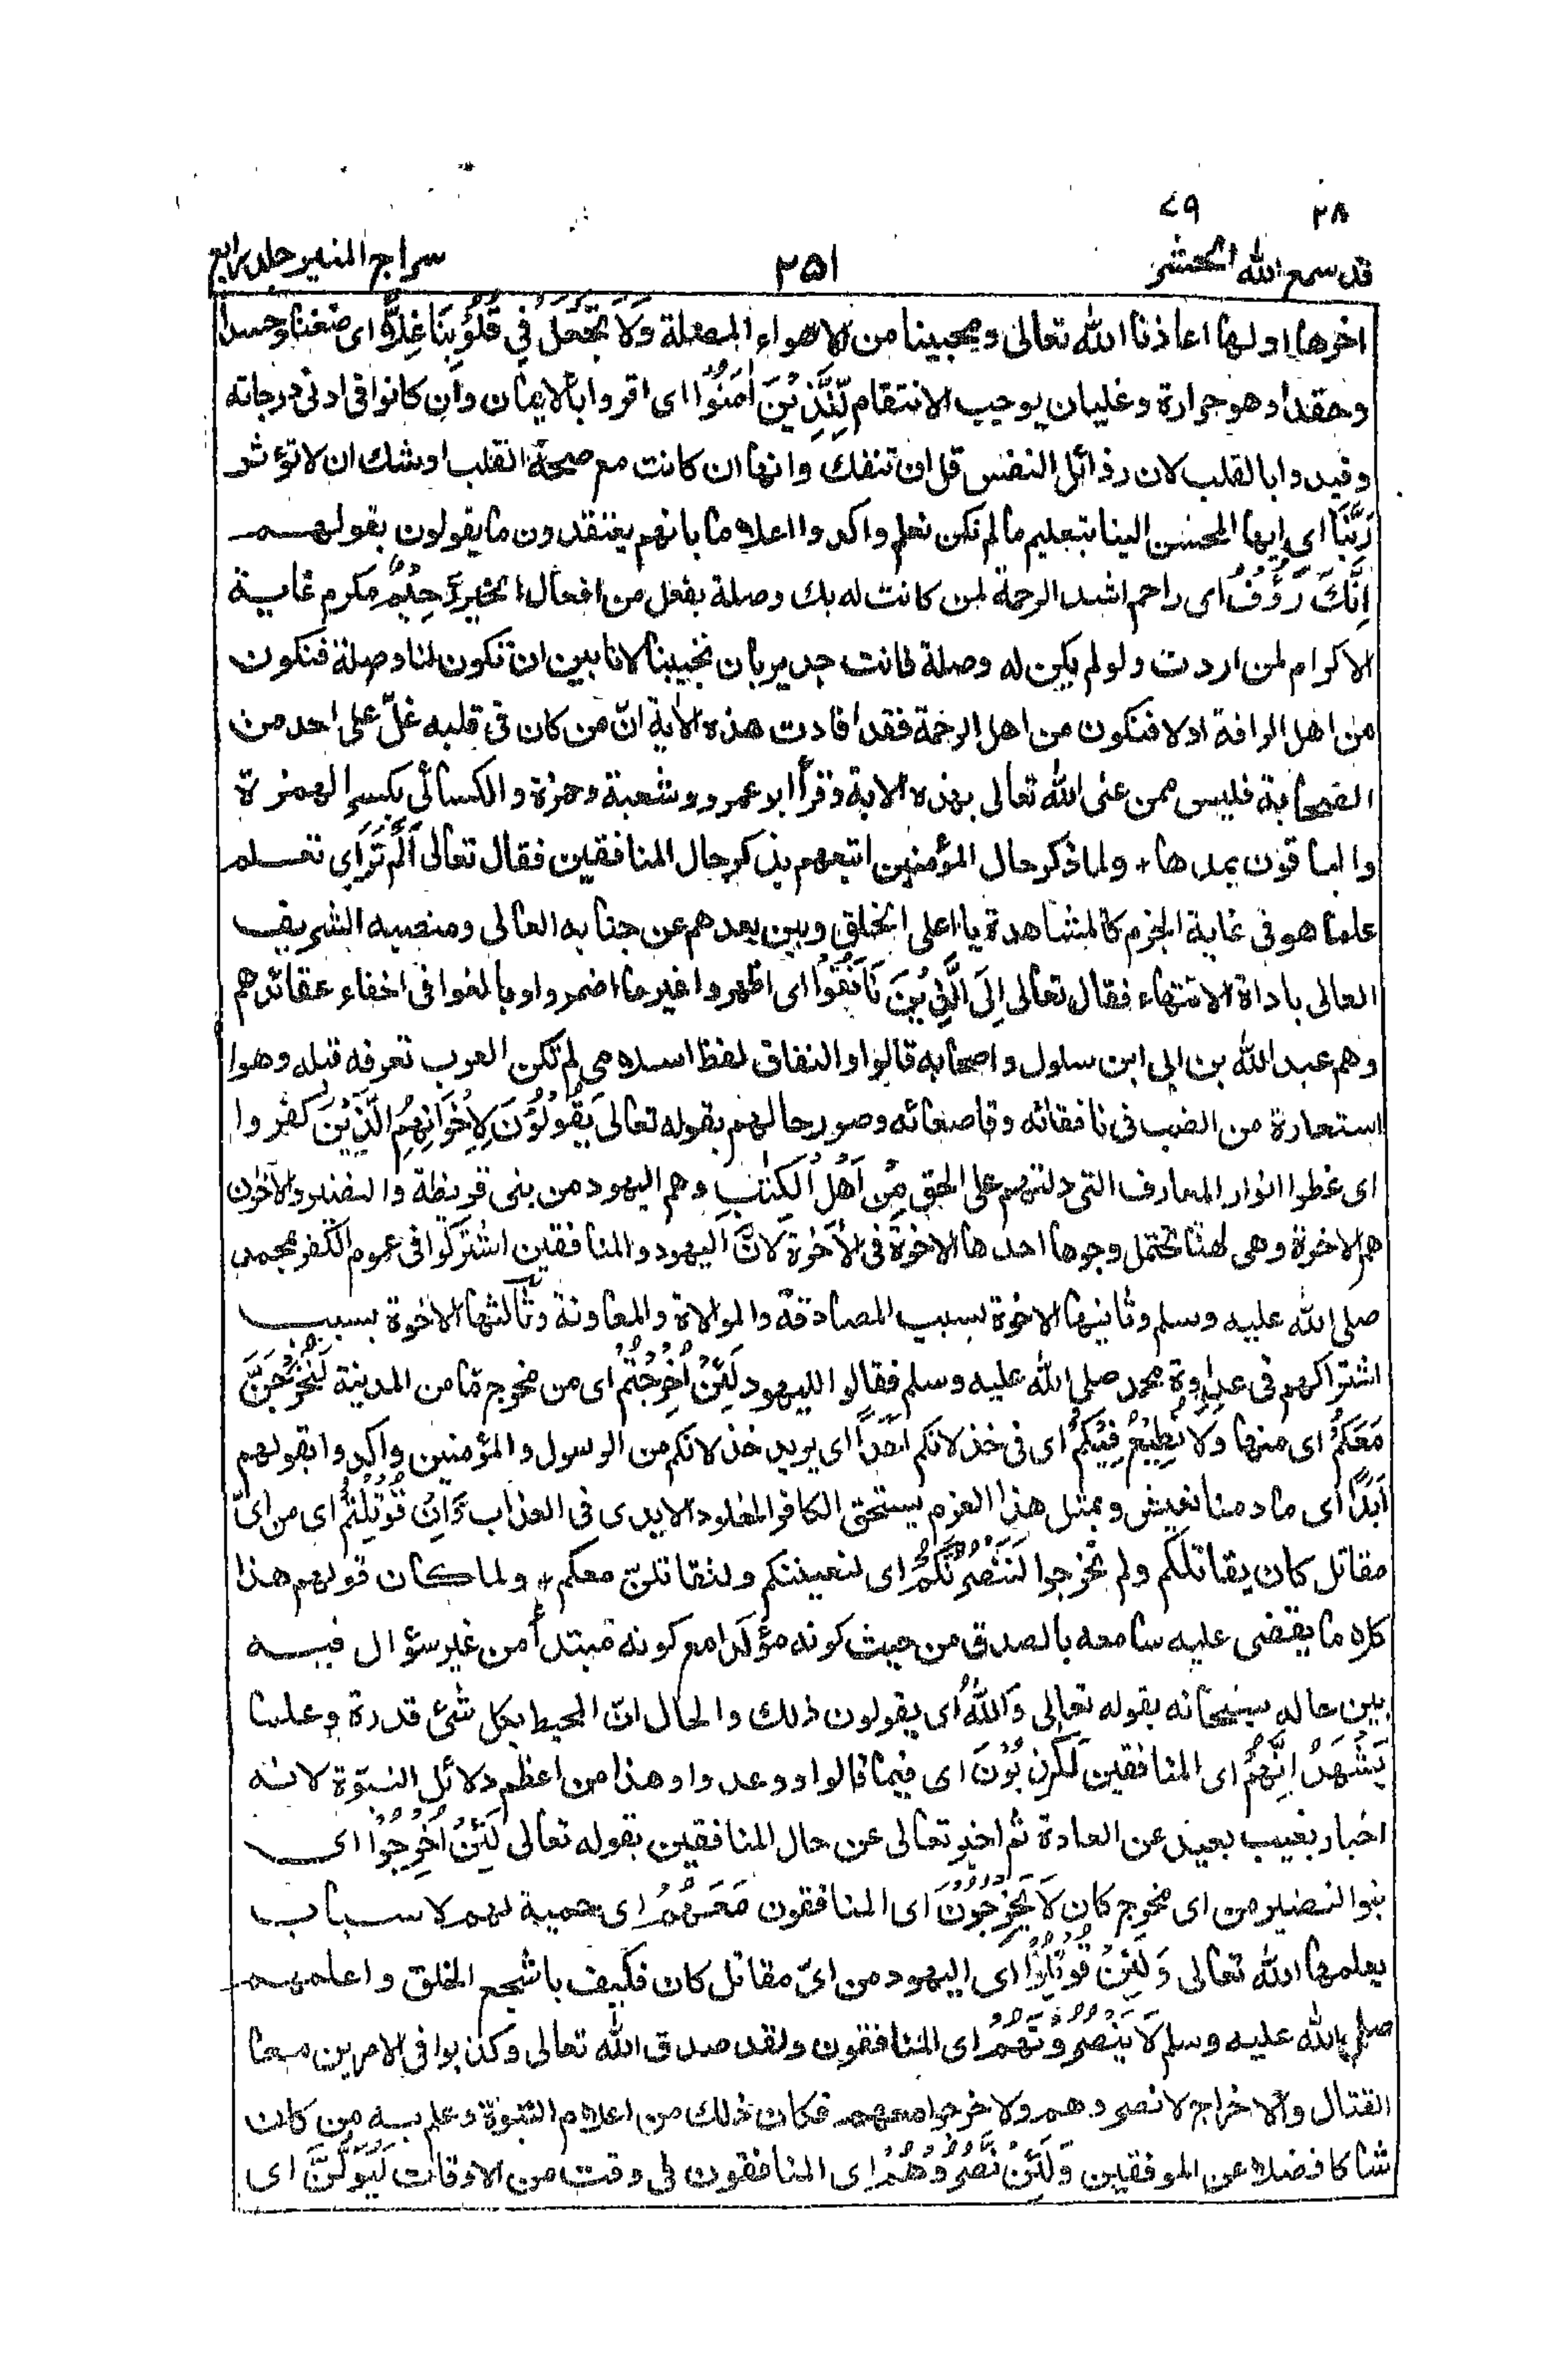 ٢٨ ٥٩
قد سمع الله الحشر
٢٥١
سراج المنير جلد رابع
اخرها اولها اعاذنا الله تعالى ومحبينا من الاهواء المضلة وَلَا تَجْعَلْ فِي قُلُوْبِنَا غِلًّا اى ضغنا وحسدا
وحقدا وهو حرارة وغليان يوجب الانتقام لِّلَّذِيْنَ اٰمَنُوْا اى اقروا بالايمان وان كانوا فى ادنى درجاته
وقيدوا بالقلب لان رذائل النفس قل ان تنفك وانها ان كانت مع صحة القلب اوشك ان لا تؤثر
رَبَّنَا اى ايها المحسن الينا بتعليم ما لم نكن نعلم واكدوا اعلاما بانهم يعتقدون ما يقولون بقولهم
اِنَّكَ رَؤُفٌ اى راحم اشد الرحمة لمن كانت له بك وصلة بفعل من افعال الخير رَّحِيْمٌ مكرم غاية
الاكرام لمن اردت ولو لم يكن له وصلة فانت جدير بان تجيبنا لانا بين ان تكون لنا وصلة فنكون
من اهل الرافة اولا فنكون من اهل الرحمة فقد افادت هذه الاية انّ من كان فى قلبه غلّ على احد من
الصحابة فليس ممن عنى الله تعالى بهذه الاية وقرأ ابو عمرو وشعبة وحمزة والكسائى بكسر الهمزة
والباقون بمدها ولما ذكر حال المؤمنين اتبعهم بذكر حال المنافقين فقال تعالى اَلَمْ تَرَ اى تعلم
علما هو فى غاية الجزم كالمشاهدة يا اعلى الخلق وبين بعدهم عن جنابه العالى ومنصبه الشريف
العالى باداة الانتهاء فقال تعالى اِلَى الَّذِيْنَ نَافَقُوْا اى اظهروا غير ما اضمروا وبالغوا فى اخفاء عقائدهم
وهم عبد الله بن ابى ابن سلول واصحابه قالوا والنفاق لفظ اسلامى لم تكن العرب تعرفه قبله وهوا
استعارة من الضب فى نافقائه وقاصعائه وصور حالهم بقوله تعالى يَقُوْلُوْنَ لِاِخْوَانِهِمُ الَّذِيْنَ كَفَرُوا
اى غطوا انوار المعارف التى دلتهم على الحق مِنْ اَهْلِ الْكِتٰبِ وهم اليهود من بنى قريظة والنضير والاخوان
هم الاخوة وهى ههنا تحتمل وجوها احدها الاخوة فى الاخوة لانّ اليهود والمنافقين اشتركوا فى عموم الكفر بمحمد
صلى الله عليه وسلم وثانيها الاخوة بسبب المصادقة والموالاة والمعاونة وثالثها الاخوة بسبب
اشتراكهم فى عداوة محمد صلى الله عليه وسلم فقالوا لليهود لَئِنْ اُخْرِجْتُمْ اى من مخرج مّا من المدينة لَنَخْرُجَنَّ
مَعَكُمْ اى منها وَلَا نُطِيْعُ فِيْكُمْ اى فى خذلانكم اَحَدًا اى يريد خذلانكم من الرسول والمؤمنين واكدوا بقولهم
اَبَدًا اى ما دمنا نعيش وبمثل هذا العزم يستحق الكافر الخلود الابدى فى العذاب وَّاِنْ قُوْتِلْتُمْ اى من اىّ
مقاتل كان يقاتلكم ولم تخرجوا لَنَنْصُرَنَّكُمْ اى لنعيننكم ولنقاتلنّ معكم ولما كان قولهم هذا
كلاما يقضى عليه سامعه بالصدق من حيث كونه مؤكدا مع كونه مبتدأ من غير سؤال فيه
بين حاله سبحانه بقوله تعالى وَاللّٰهُ اى يقولون ذلك والحال انّ المحيط بكل شئ قدرة وعلما
يَشْهَدُ اِنَّهُمْ اى المنافقين لَكٰذِبُوْنَ اى فيما قالوا ووعدوا وهذا من اعظم دلائل النبوّة لانه
اخبار بغيب بعيد عن العادة ثم اخبر تعالى عن حال المنافقين بقوله تعالى لَئِنْ اُخْرِجُوْا اى
بنو النضير من اى مخرج كان لَا يَخْرُجُوْنَ اى المنافقون مَعَهُمْ اى حمية لهم لاسباب
يعلمها الله تعالى وَلَئِنْ قُوْتِلُوْا اى اليهود من اىّ مقاتل كان فكيف باشجع الخلق واعلمهم
صلى الله عليه وسلم لَا يَنْصُرُوْنَهُمْ اى المنافقون ولقد صدق الله تعالى وكذبوا فى الامرين معا
القتال والاخراج لا نصروهم ولا خرجوا معهم فكان ذلك من اعلام النبوة وعلم به من كان
شاكا فضلا عن الموفقين وَلَئِنْ نَّصَرُوْهُمْ اى المنافقون فى وقت من الاوقات لَيُوَلُّنَّ اى